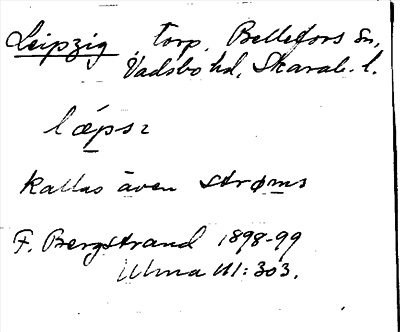 Leipzig, torp, Bellefors sn,
Vadsbo hd, Skarab. l.
lǽpsı
kallas även strøms
F. Bergstrand 1898-99
Ulma 111:303.